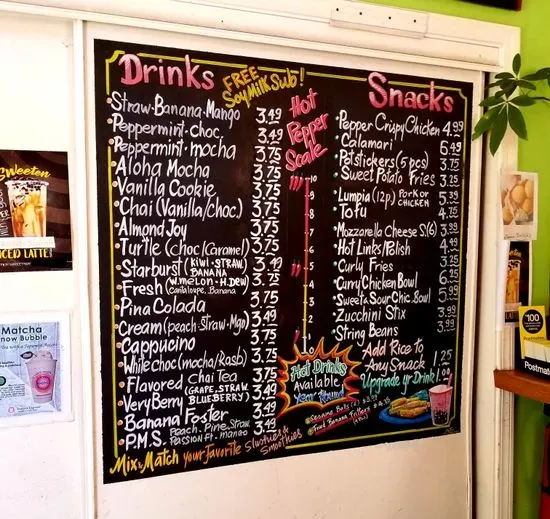 Drinks
FREE
Soy Milk Sub!
Straw-Banana-Mango 3.49
Peppermint-Choc. 3.49
Peppermint-mocha 3.75
Aloha Mocha 3.75
Vanilla Cookie 3.75
Chai (Vanilla/choc) 3.75
Almond Joy 3.75
Turtle (choc/caramel) 3.75
Starburst (KIWI-STRAW. BANANA) 3.49
Fresh (W.melon-H.DEW) (Cantaloupe, Banana 3.75
Pina Colada 3.75
Cream (peach-Straw-Mgo) 3.49
Cappucino 3.75
White Choc (mocha/Rasb) 3.75
Flavored Chai Tea 3.75
Very Berry (GRAPE, STRAW. BLUEBERRY) 3.49
Banana Foster 3.49
P.M.S. Peach-Pine-Straw. Passion Fr.-mango 3.49
Mix & Match your favorite Slushies & Smoothies
Hot
Pepper
Scale
10
9
8
7
6
5
4
3
2
Snacks
Pepper Crispy Chicken 4.99
Calamari 6.49
Potstickers (5 pcs) 3.75
Sweet Potato Fries 3.25
Lumpia (12p) PORK OR CHICKEN 5.39
Tofu 4.75
Mozzarella Cheese S.(6) 3.99
Hot Links/Polish 4.49
Curly Fries 3.25
Curry Chicken Bowl 6.25
Sweet & Sour Chic. Bowl 5.99
Zucchini Stix 3.99
String Beans 3.99
Add Rice To
Any Snack 1.25
Upgrade yr Drink 1.00
Hot Drinks
Available
Year Round
Sesame Balls
Fried Banana Fritters
Sweeten
ICED LATTE
Matcha
now Bubble
$100
Postmates
Postmate